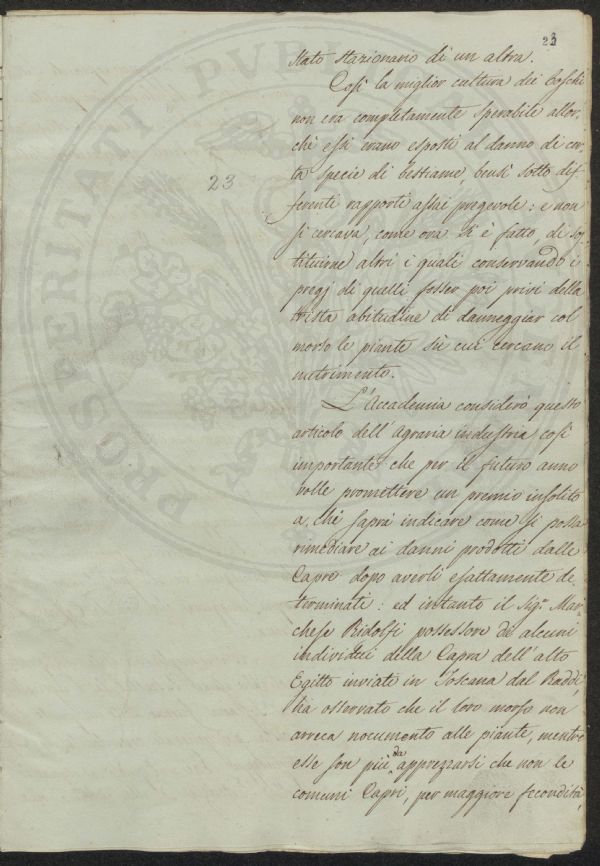 23
stato stazionario di un altra.
Così la miglior cultura dei Boschi
non era completamente sperabile allor,
chè essi erano esposti al danno di cer,
ta specie di bestiame, bensì sotto dif,
ferenti rapporti assai pregevole: e non
si cercava, come ora si è fatto, di so,
tituirne altri i quali conservando i
pregj di quelli fosser poi privi della
trista abitudine di danneggiar col
morso le piante sù cui cercano il
nutrimento.
L'Accademia considerò questo
articolo dell'Agraria industria così
importante che per il futuro anno
volle promettere un premio insolito
a chi saprà indicare come si possa
rimediare ai danni prodotti dalle
Capre dopo averli esattamente de
terminati: ed intanto il Sigr. Mar,
chese Ridolfi possessore di alcuni
individui della Capra dell'alto
Egitto inviato in Toscana dal Raddi,
ha osservato che il loro morso non
arreca nocumento alle piante, mentre
esse son più da apprezzarsi che non le
comuni Capri, per maggiore fecondità,
23
PROSPERITATI PVBL